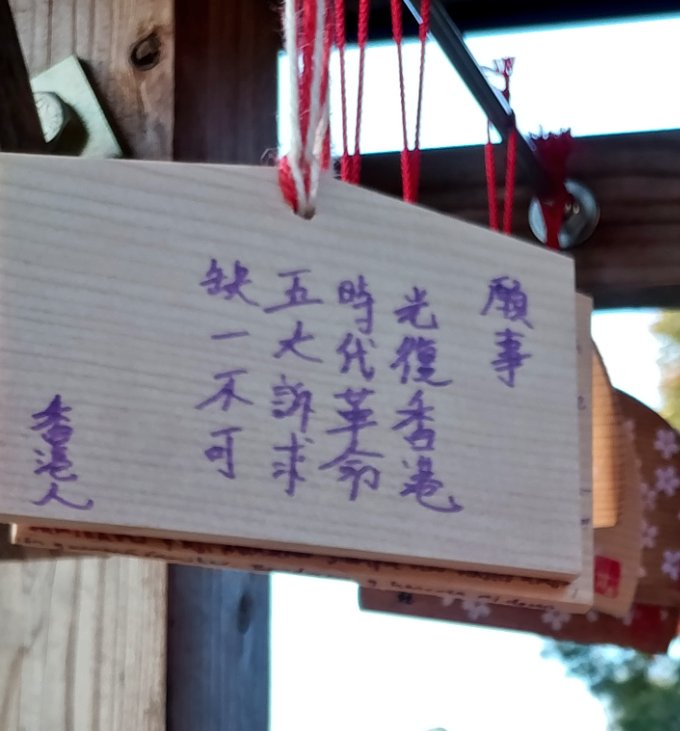 願事
光復香港
時代革命
五大訴求
缺一不可
香港人